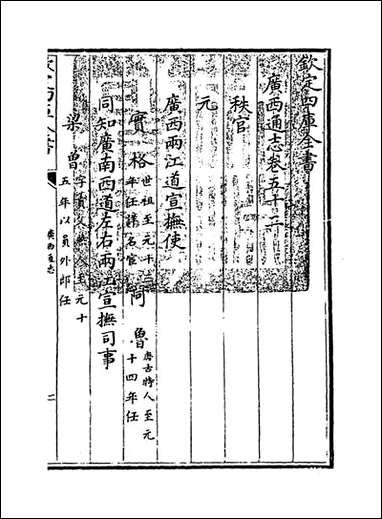 欽定四庫全書
廣西通志卷五十二
秩官
元
廣西兩江道宣撫使
實格 世祖至元十
年任詳名宦 阿魯 唐古特人至元
十四年任
同知廣南西道左右兩江宣撫司事
梁曾 字貢父燕人至元十
五年以員外郎任
廣西通志